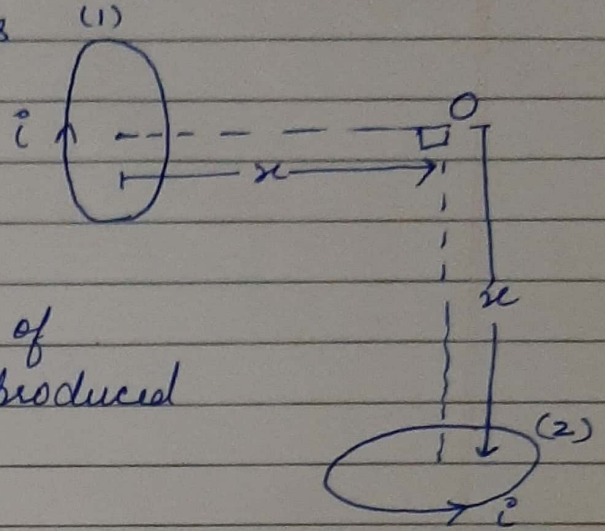 (1)
i
O
x
x
of
produced
(2)
i